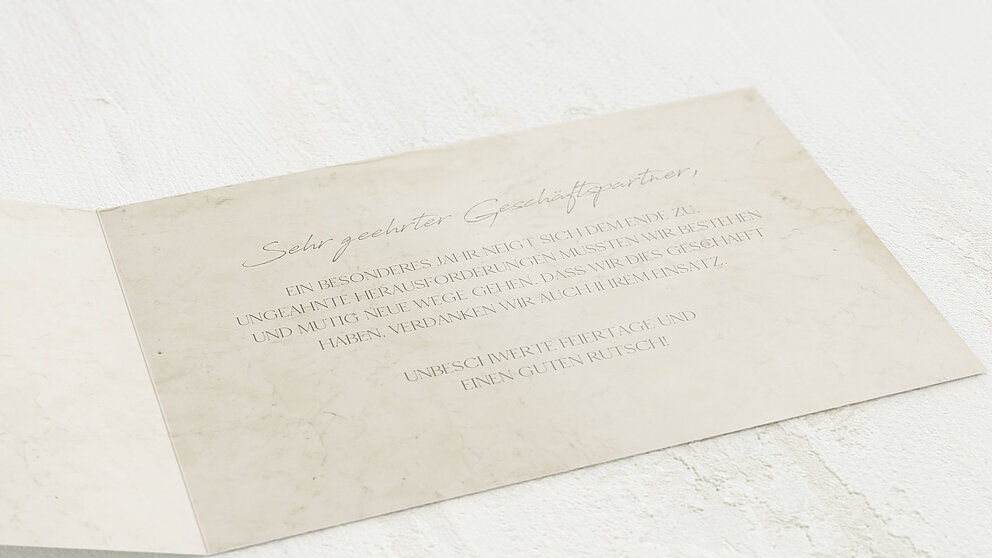 Sehr geehrter Geschäftspartner,
EIN BESONDERES JAHR NEIGT SICH DEM ENDE ZU.
UNGEAHNTE HERAUSFORDERUNGEN MUSSTEN WIR BESTEHEN
UND MUTIG NEUE WEGE GEHEN. DASS WIR DIES GESCHAFFT
HABEN, VERDANKEN WIR AUCH IHREM EINSATZ.
UNBESCHWERTE FEIERTAGE UND
EINEN GUTEN RUTSCH!